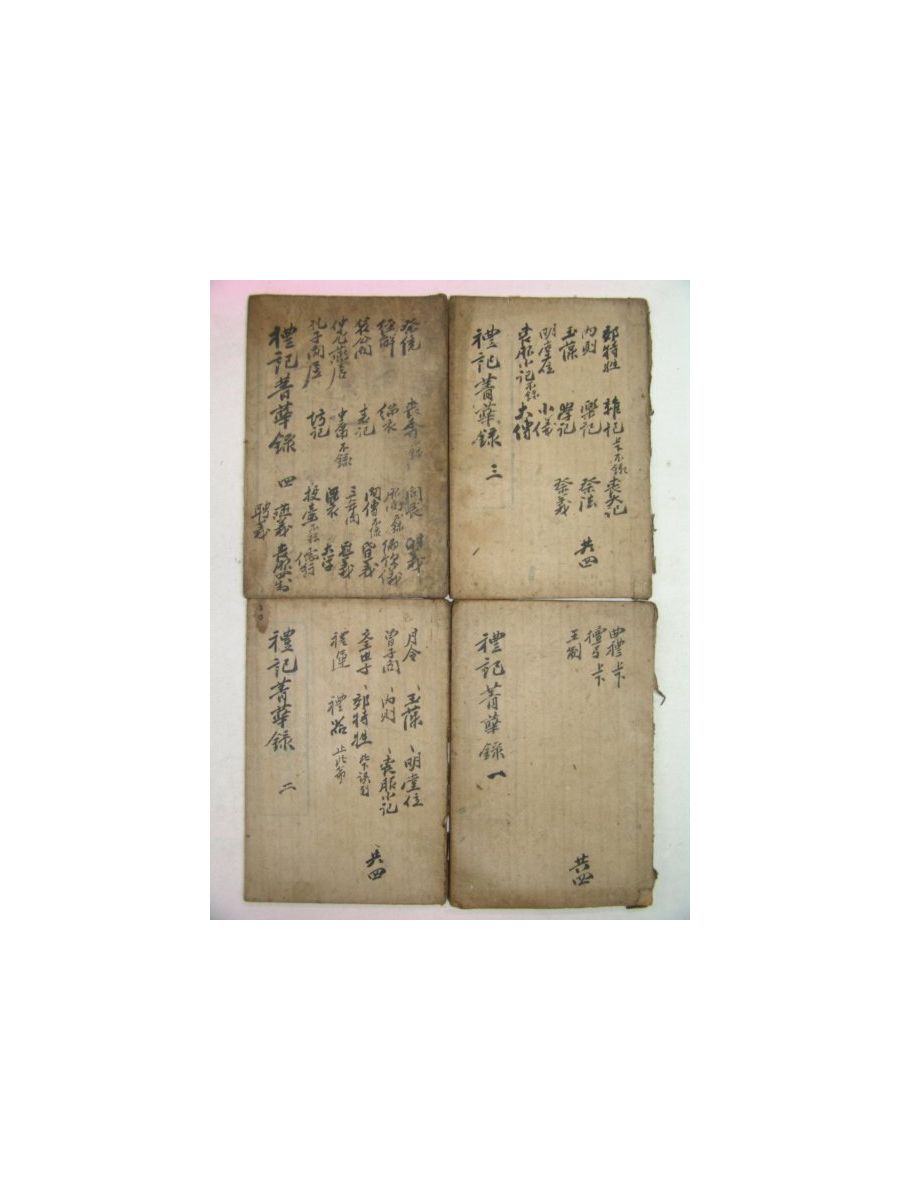 郊特牲 雜記 上下不錄 喪大記
內則 樂記 祭法
玉藻 學記 祭義
明堂位 小儀
喪服小記 不錄 大傳
禮記菁華錄 三
共四
祭統
經解 緇衣
哀公問 表記
仲尼燕居 中庸 不錄
孔子閒居 坊記
問喪
儒行
三年問
深衣 大學
投壺
昏義
燕義
聘義
禮記菁華錄 四
曲禮 上下
檀弓 上下
王制
禮記菁華錄 一
共四
月令 玉藻 明堂位
曾子問 內則 喪服小記
文王世子 郊特牲
禮運 禮器
禮記菁華錄 二
共四